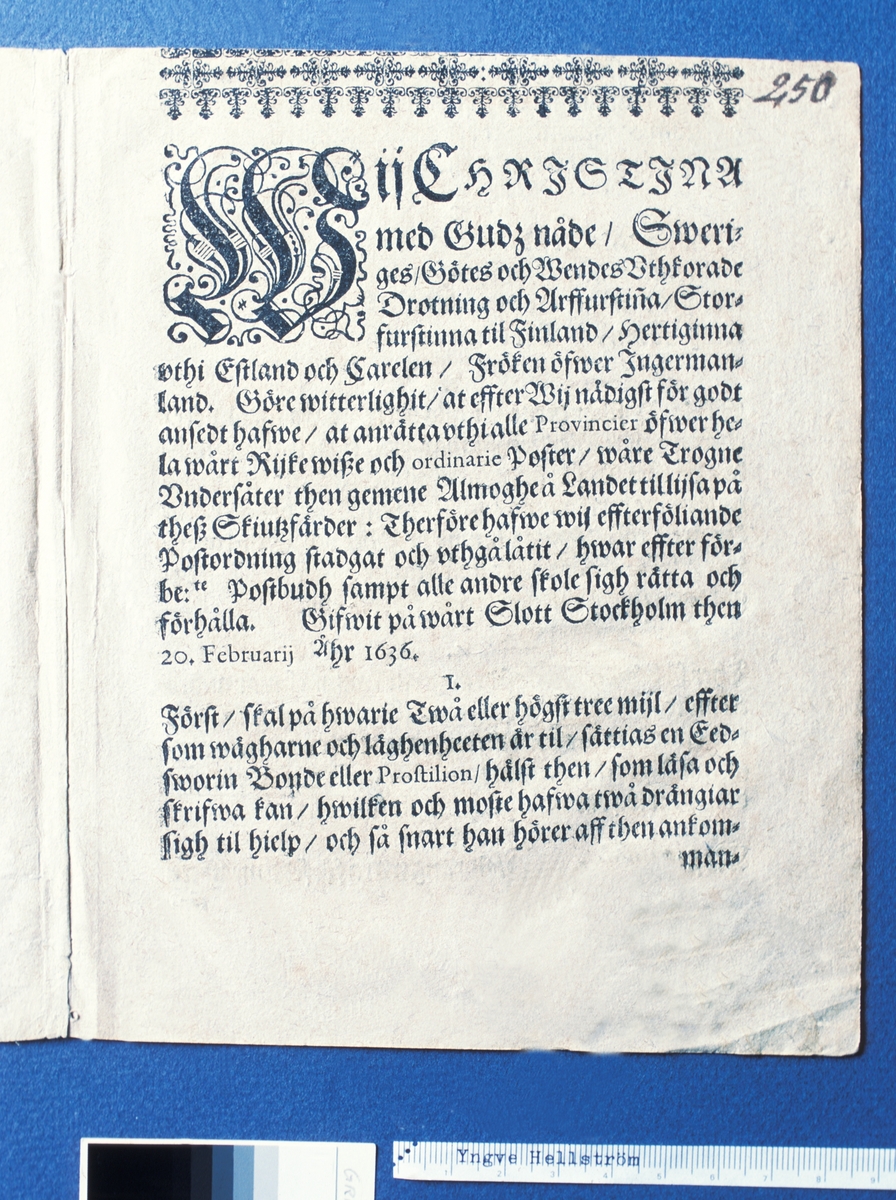 250
Wij CHRISTINA
med Gudz nåde / Sweri-
ges/Götes och Wendes Vthkorade
Drotning och Arffurstiña/Stor-
furstinna til Finland / Hertiginna
vthi Estland och Carelen / Fröken öfwer Ingerman-
land. Göre witterlighit/ at effter Wij nådigst för godt
ansedt hafwe / at anrätta vthi alle Provincier öfwer he-
la wårt Rijke wiße och ordinarie Poster / wåre Trogne
Vndersåter then gemene Almoghe å Landet til lijsa på
theß Skiutzfärder : Therföre hafwe wij effterföliande
Postordning stadgat och vthgå låtit / hwar effter för-
be:te Postbudh sampt alle andre skole sigh rätta och
förhålla. Gifwit på wårt Slott Stockholm then
20. Februarij Åhr 1636.
I.
Först / skal på hwarie Twå eller högst tree mijl / effter
som wägharne och läghenheeten är til / sättias en Eed-
sworin Bonde eller Prostilion / hälst then / som läsa och
skrifwa kan / hwilken och moste hafwa twå drängiar
sigh til hielp / och så snart han hörer aff then ankom-
man-
Yngve Hellström